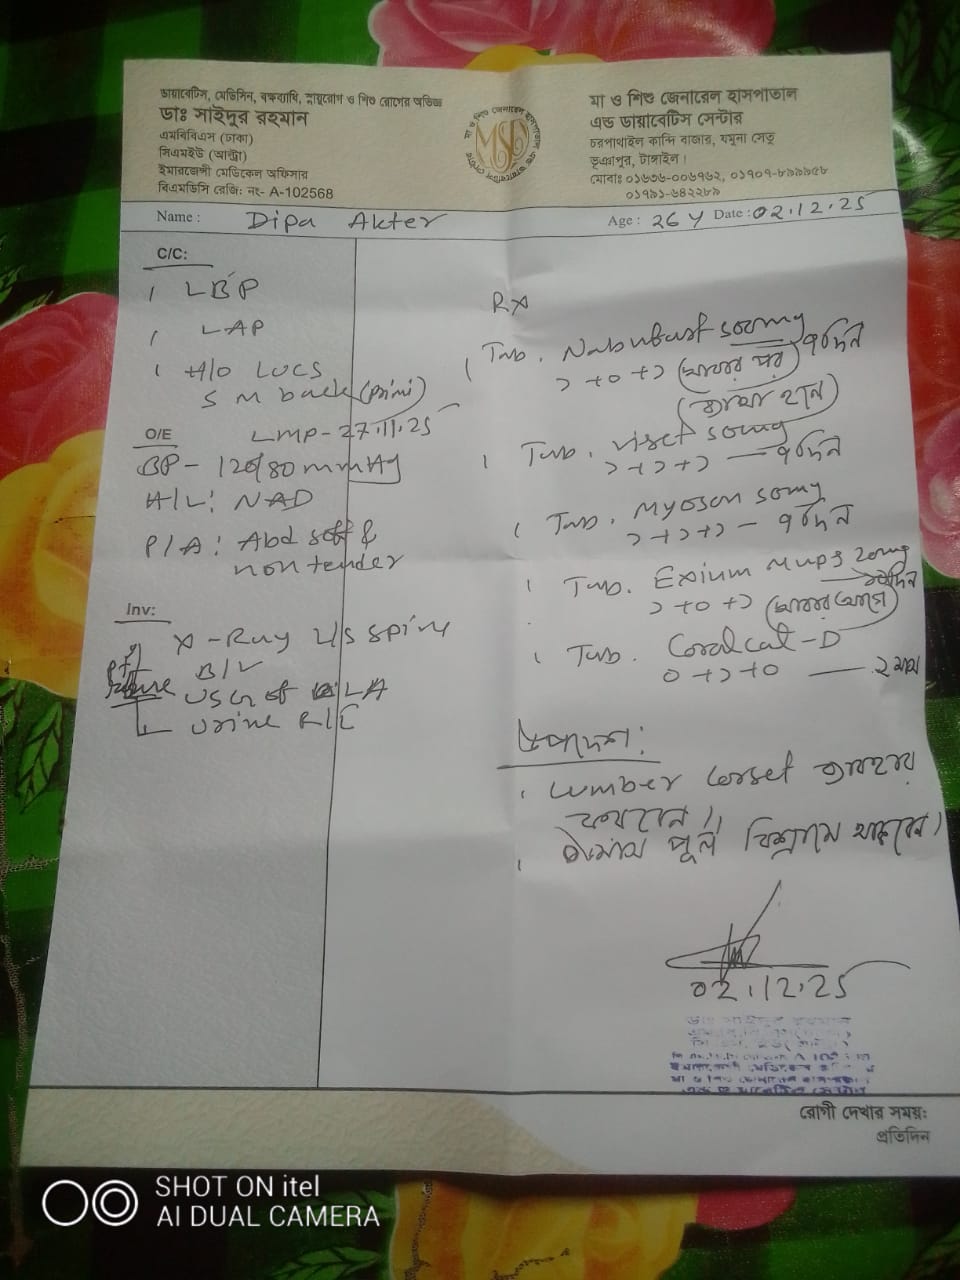 ডায়াবেটিস, মেডিসিন, বক্ষব্যাধি, স্নায়ুরোগ ও শিশু রোগের অভিজ্ঞ
ডাঃ সাইদুর রহমান
এমবিবিএস (ঢাকা)
সিএমইউ (আল্ট্রা)
ইমারজেন্সী মেডিকেল অফিসার
বিএমডিসি রেজি: নং- A-102568
মা ও শিশু জেনারেল হাসপাতাল
এন্ড ডায়াবেটিস সেন্টার
চরপাথাইল কান্দি বাজার, যমুনা সেতু
ভূঞাপুর, টাঙ্গাইল।
মোবাঃ ০১৬৩৬-০০৬৭৬২, ০১৭০৭-৮৯৯৯৫৮
০১৭৯১-৬৪২২৮৯
Name : Dipa Akter Age : 26 Y Date : 02.12.25
C/C:
LBP
LAP
H/O LUCS
5 M back (primi)
LMP - 27.11.25
O/E
BP - 120/80 mmHg
H/L: NAD
P/A: Abd soft &
non tender
Inv:
X-Ray L/S spine
USG of
Urine R/E
RX
Tab. 500mg ৭ দিন
১+০+১ (খাবার পর)
Tab. 50mg
১+১+১ — ৭ দিন
Tab. Myoson 50mg
১+১+১ — ৭ দিন
Tab. Exium Mups 20mg
১+০+১ (খাবার আগে)
Tab. Coralcal-D
০+১+০ — ২ মাস
উপদেশ:
Lumber Corset ব্যবহার
করবেন।
পূর্ণ বিশ্রামে থাকবেন।
02.12.25
রোগী দেখার সময়:
প্রতিদিন
SHOT ON itel
AI DUAL CAMERA